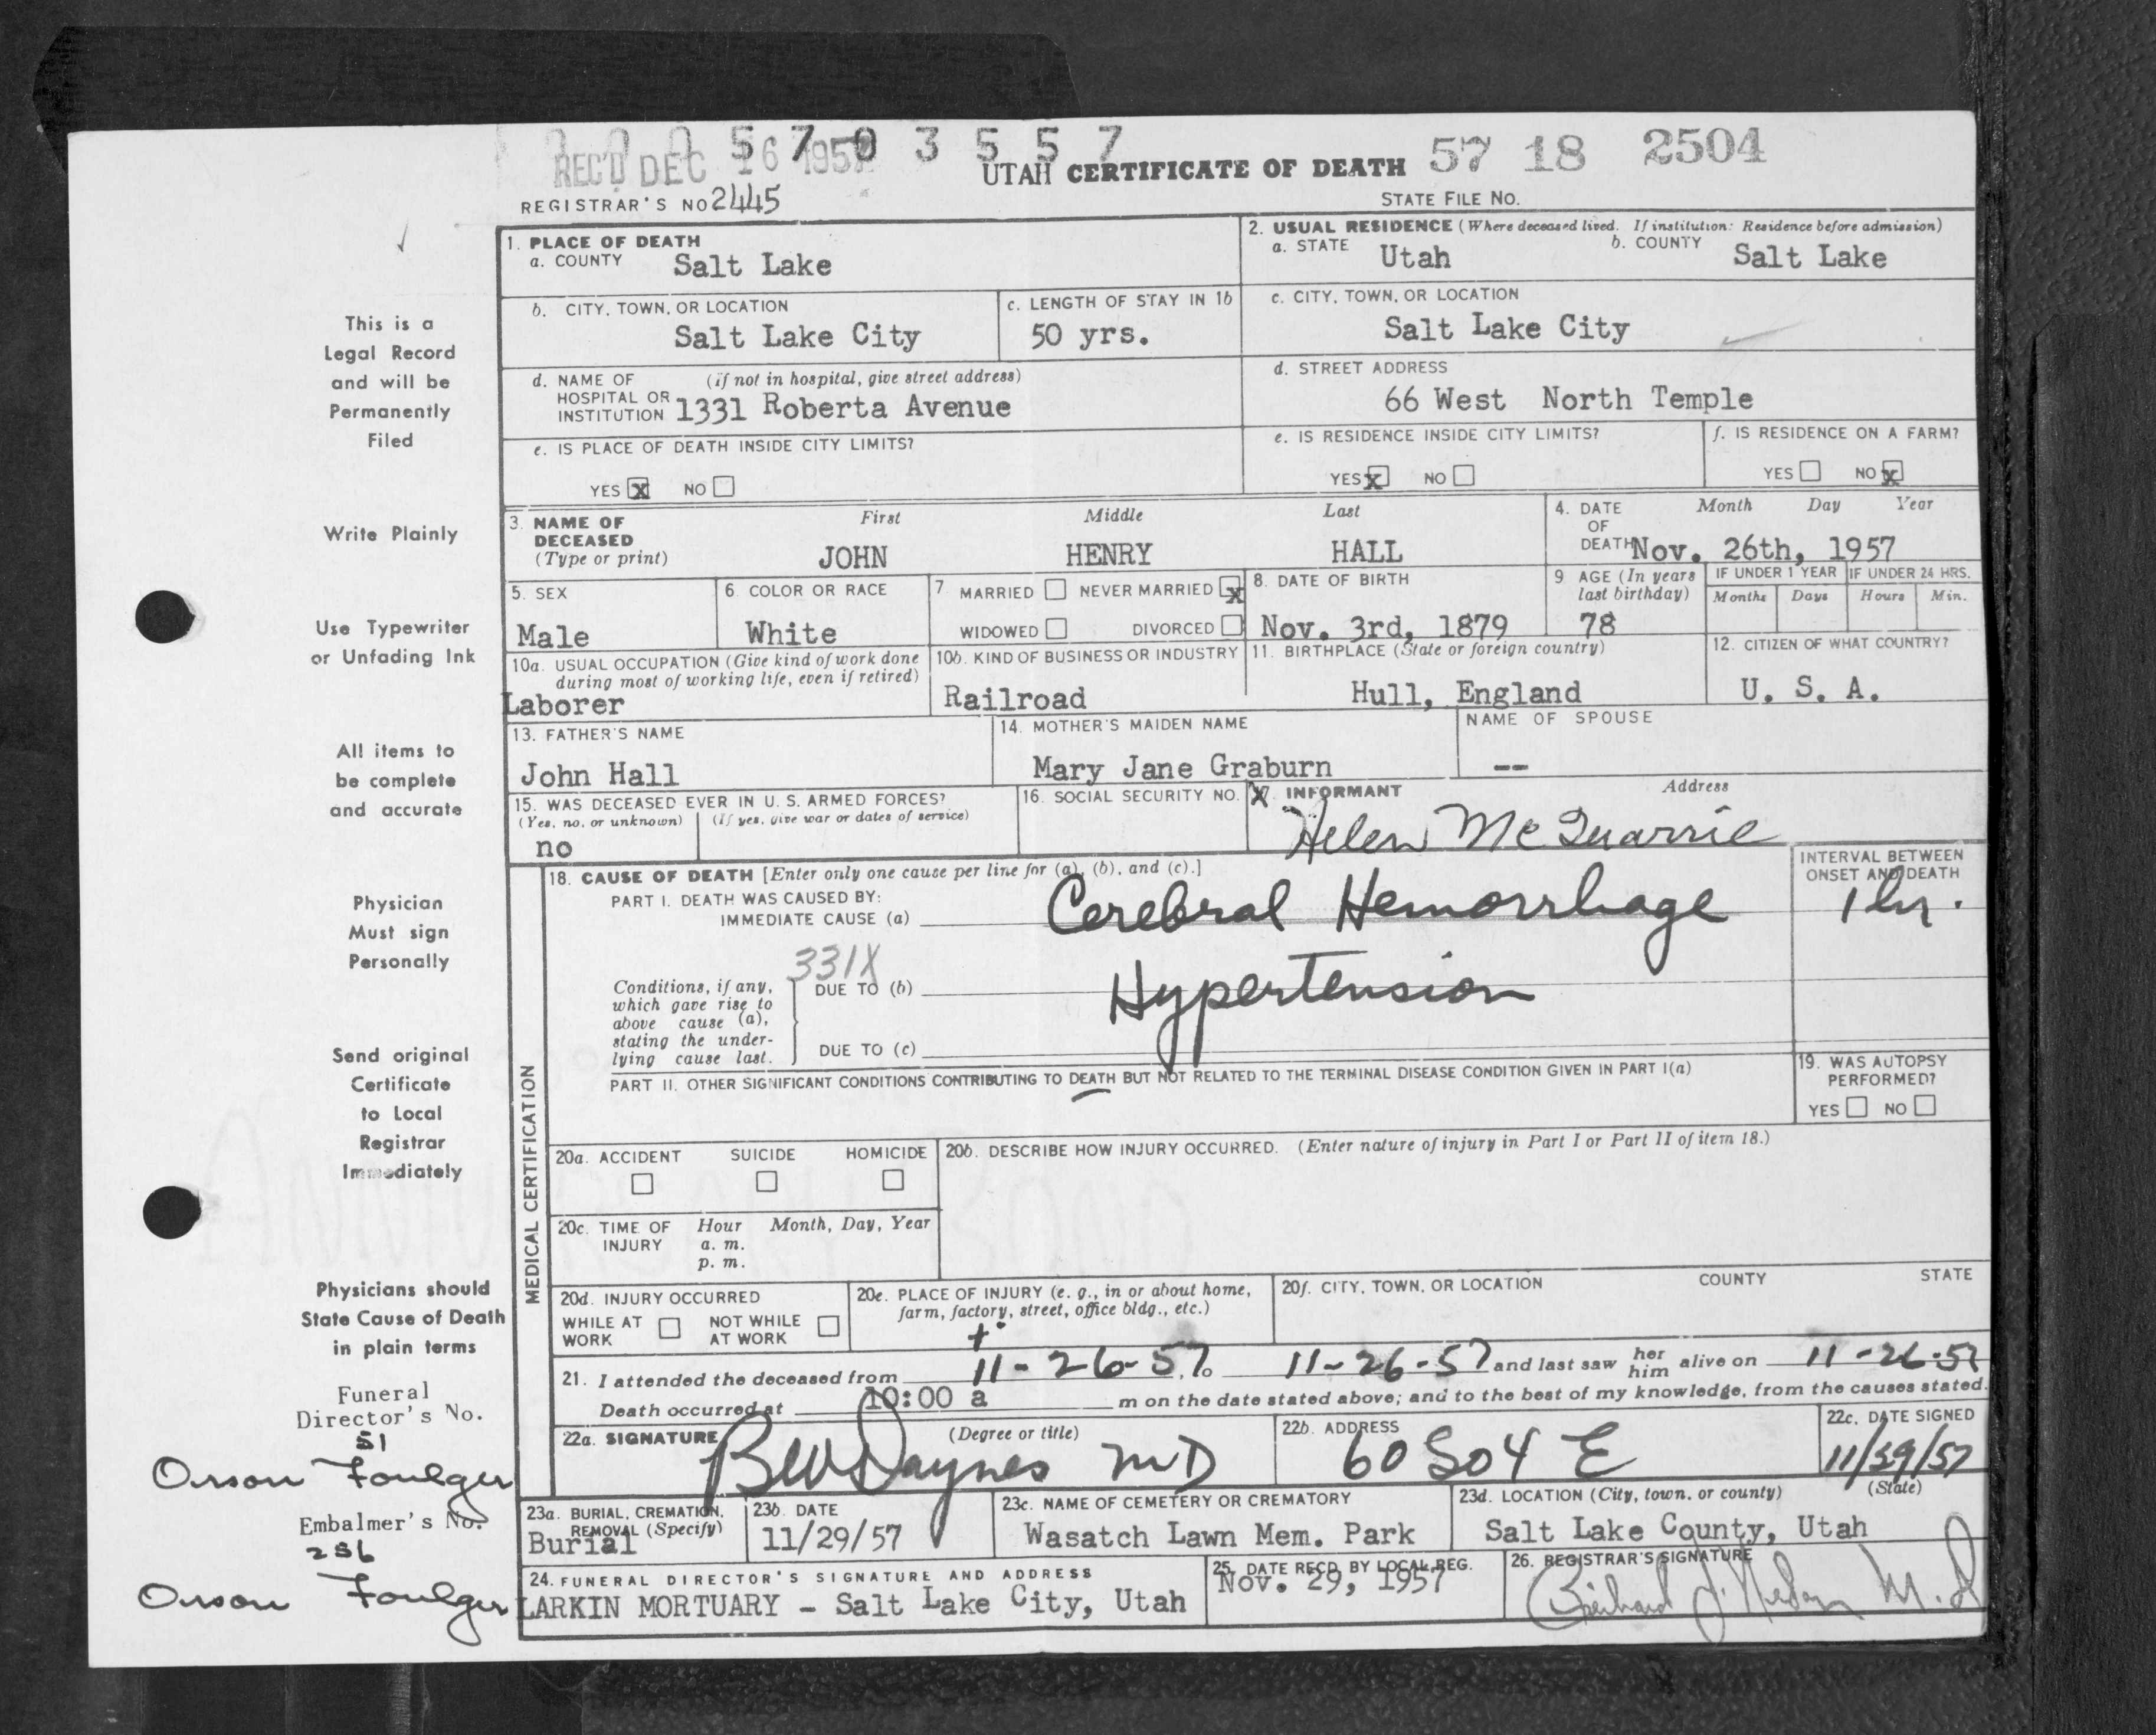 0 0 0 5 7 0 3 5 5 7
REC'D DEC 16 1957
UTAH CERTIFICATE OF DEATH 57 18 2504
REGISTRAR'S NO 2445
STATE FILE NO.
1. PLACE OF DEATH
a. COUNTY Salt Lake
2. USUAL RESIDENCE (Where deceased lived. If institution: Residence before admission)
a. STATE Utah b. COUNTY Salt Lake
b. CITY, TOWN, OR LOCATION
Salt Lake City
c. LENGTH OF STAY IN 1b
50 yrs.
c. CITY, TOWN, OR LOCATION
Salt Lake City
d. NAME OF HOSPITAL OR INSTITUTION (if not in hospital, give street address)
1331 Roberta Avenue
d. STREET ADDRESS
66 West North Temple
e. IS PLACE OF DEATH INSIDE CITY LIMITS?
YES X NO
e. IS RESIDENCE INSIDE CITY LIMITS?
YES X NO
f. IS RESIDENCE ON A FARM?
YES NO X
3. NAME OF DECEASED (Type or print)
First Middle Last
JOHN HENRY HALL
4. DATE OF DEATH Month Day Year
Nov. 26th, 1957
5. SEX
Male
6. COLOR OR RACE
White
7. MARRIED NEVER MARRIED X
WIDOWED DIVORCED
8. DATE OF BIRTH
Nov. 3rd, 1879
9 AGE (In years last birthday)
78
IF UNDER 1 YEAR IF UNDER 24 HRS.
Months Days Hours Min.
10a. USUAL OCCUPATION (Give kind of work done during most of working life, even if retired)
Laborer
10b. KIND OF BUSINESS OR INDUSTRY
Railroad
11. BIRTHPLACE (State or foreign country)
Hull, England
12. CITIZEN OF WHAT COUNTRY?
U. S. A.
13. FATHER'S NAME
John Hall
14. MOTHER'S MAIDEN NAME
Mary Jane Graburn
NAME OF SPOUSE
--
15. WAS DECEASED EVER IN U. S. ARMED FORCES?
(Yes, no, or unknown) (If yes, give war or dates of service)
no
16. SOCIAL SECURITY NO.
X INFORMANT Address
Helen McQuarrie
MEDICAL CERTIFICATION
18. CAUSE OF DEATH [Enter only one cause per line for (a), (b), and (c).]
INTERVAL BETWEEN ONSET AND DEATH
PART I. DEATH WAS CAUSED BY:
IMMEDIATE CAUSE (a) Cerebral Hemorrhage 1 hr.
331X
Conditions, if any, which gave rise to above cause (a), stating the underlying cause last.
DUE TO (b) Hypertension
DUE TO (c)
PART II. OTHER SIGNIFICANT CONDITIONS CONTRIBUTING TO DEATH BUT NOT RELATED TO THE TERMINAL DISEASE CONDITION GIVEN IN PART I(a)
19. WAS AUTOPSY PERFORMED?
YES NO
20a. ACCIDENT SUICIDE HOMICIDE
20b. DESCRIBE HOW INJURY OCCURRED. (Enter nature of injury in Part I or Part II of item 18.)
20c. TIME OF INJURY Hour Month, Day, Year
a. m.
p. m.
20d. INJURY OCCURRED
WHILE AT WORK NOT WHILE AT WORK
20e. PLACE OF INJURY (e. g., in or about home, farm, factory, street, office bldg., etc.)
20f. CITY, TOWN, OR LOCATION COUNTY STATE
21. I attended the deceased from 11-26-57, to 11-26-57 and last saw her him alive on 11-26-57
Death occurred at 10:00 a m on the date stated above; and to the best of my knowledge, from the causes stated.
22a. SIGNATURE (Degree or title)
BW Daynes MD
22b. ADDRESS
60 So 4 E
22c. DATE SIGNED
11/29/57
23a. BURIAL, CREMATION, REMOVAL (Specify)
Burial
23b. DATE
11/29/57
23c. NAME OF CEMETERY OR CREMATORY
Wasatch Lawn Mem. Park
23d. LOCATION (City, town, or county) (State)
Salt Lake County, Utah
24. FUNERAL DIRECTOR'S SIGNATURE AND ADDRESS
LARKIN MORTUARY - Salt Lake City, Utah
25. DATE RECD. BY LOCAL REG.
Nov. 29, 1957
26. REGISTRAR'S SIGNATURE
M.D
This is a
Legal Record
and will be
Permanently
Filed
Write Plainly
Use Typewriter
or Unfading Ink
All items to
be complete
and accurate
Physician
Must sign
Personally
Send original
Certificate
to Local
Registrar
Immediately
Physicians should
State Cause of Death
in plain terms
Funeral
Director's No.
51
Orson Foulger
Embalmer's No.
256
Orson Foulger